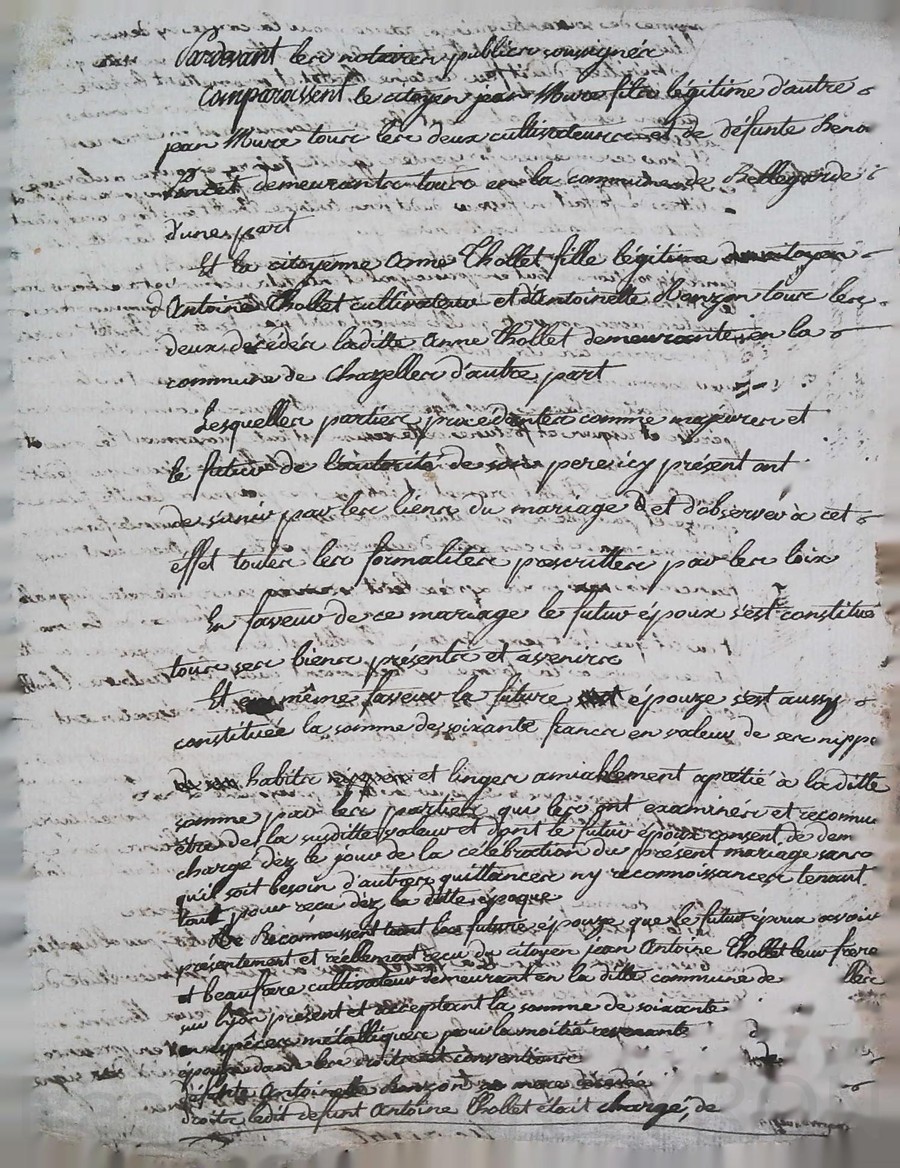 Pardevant les notaires publics soussignés
Comparoissent le citoyen jean Mure fils légitime d'autre
jean Mure tous les deux cultivateurs et de défunte
demeurants tous en la commune de Bellegarde
d'une part
Et la citoyenne Anne Thollet fille légitime
d'Antoine Thollet cultivateur et d'Antoinelle tous les
deux décédés laditte Anne Thollet demeurante en la
commune de Chazelles d'autre part
Lesquelles parties procédantes comme majeures et
le futur de l'autorité de son pere icy présent ont
de s'unir par les liens du mariage et d'observer à cet
effet toutes les formalités prescrittes par les loix
En faveur de ce mariage le futur époux s'est constitué
tous ses biens présents et avenirs
Et même faveur la future épouze s'est aussy
constituée la somme de soixante francs en valeur de ses nippe
habits et linges amiablement apétié à laditte
somme par les parties qui les ont examinés et reconnu
être de la susditte valeur et dont le futur époux consent de dem
chargé déz le jour de la célébration du présent mariage sans
qu'il soit besoin d'autres quittances ny reconnoissances tenant
pour recu déz la ditte époque
Reconnoissent la future épouze que le futur époux avoir
présentement et réellement recu du citoyen jean Antoine Thollet leur frere
et beaufrere cultivateur demeurant en la ditte commune de
sur lyon présent et acceptant la somme de soixante
en espèces métalliques pour la moitié
épouze dans les droits
défunte Antoinelle décédée
droits ledit defunt Antoine Thollet étoit chargé, de